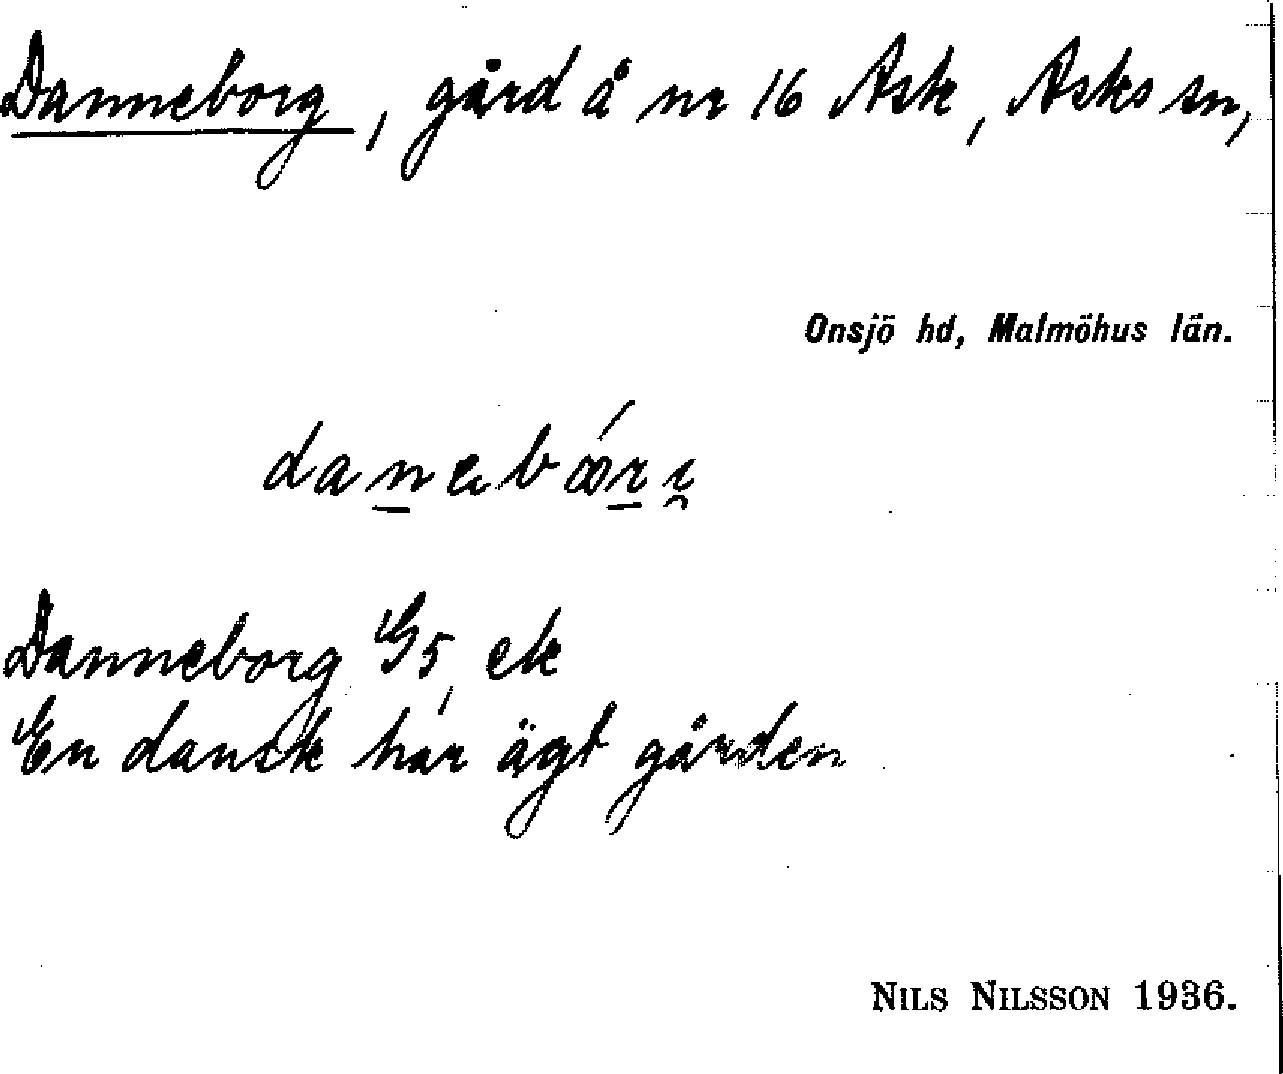 Danneborg, gård å nr 16 Ask, Asks sn,
Onsjö hd, Malmöhus län.
Danneborg G5, ek
En dansk har ägt gården
NILS NILSSON 1936.